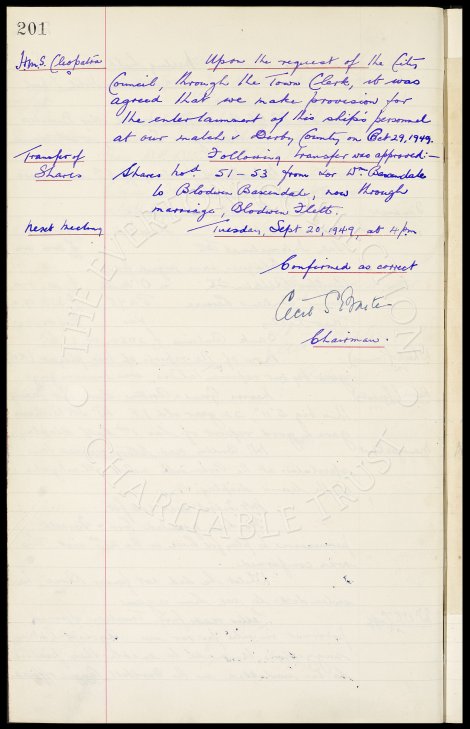 201
H.M.S. Cleopatra
Upon the request of the City
Council, through the Town Clerk, it was
agreed that we make provision for
the entertainment of this ship's personnel
at our match v Derby County on Oct 29, 1949.
Transfer of
Shares
Following transfer was approved:—
Shares nos 51 - 53 from Wm Baxendale
to Blodwen Baxendale, now through
marriage, Blodwen Flett.
Next meeting
Tuesday, Sept 20, 1949, at 4pm
Confirmed as correct
Cecil S
Chairman.
THE EVERTON COLLECTION
CHARITABLE TRUST